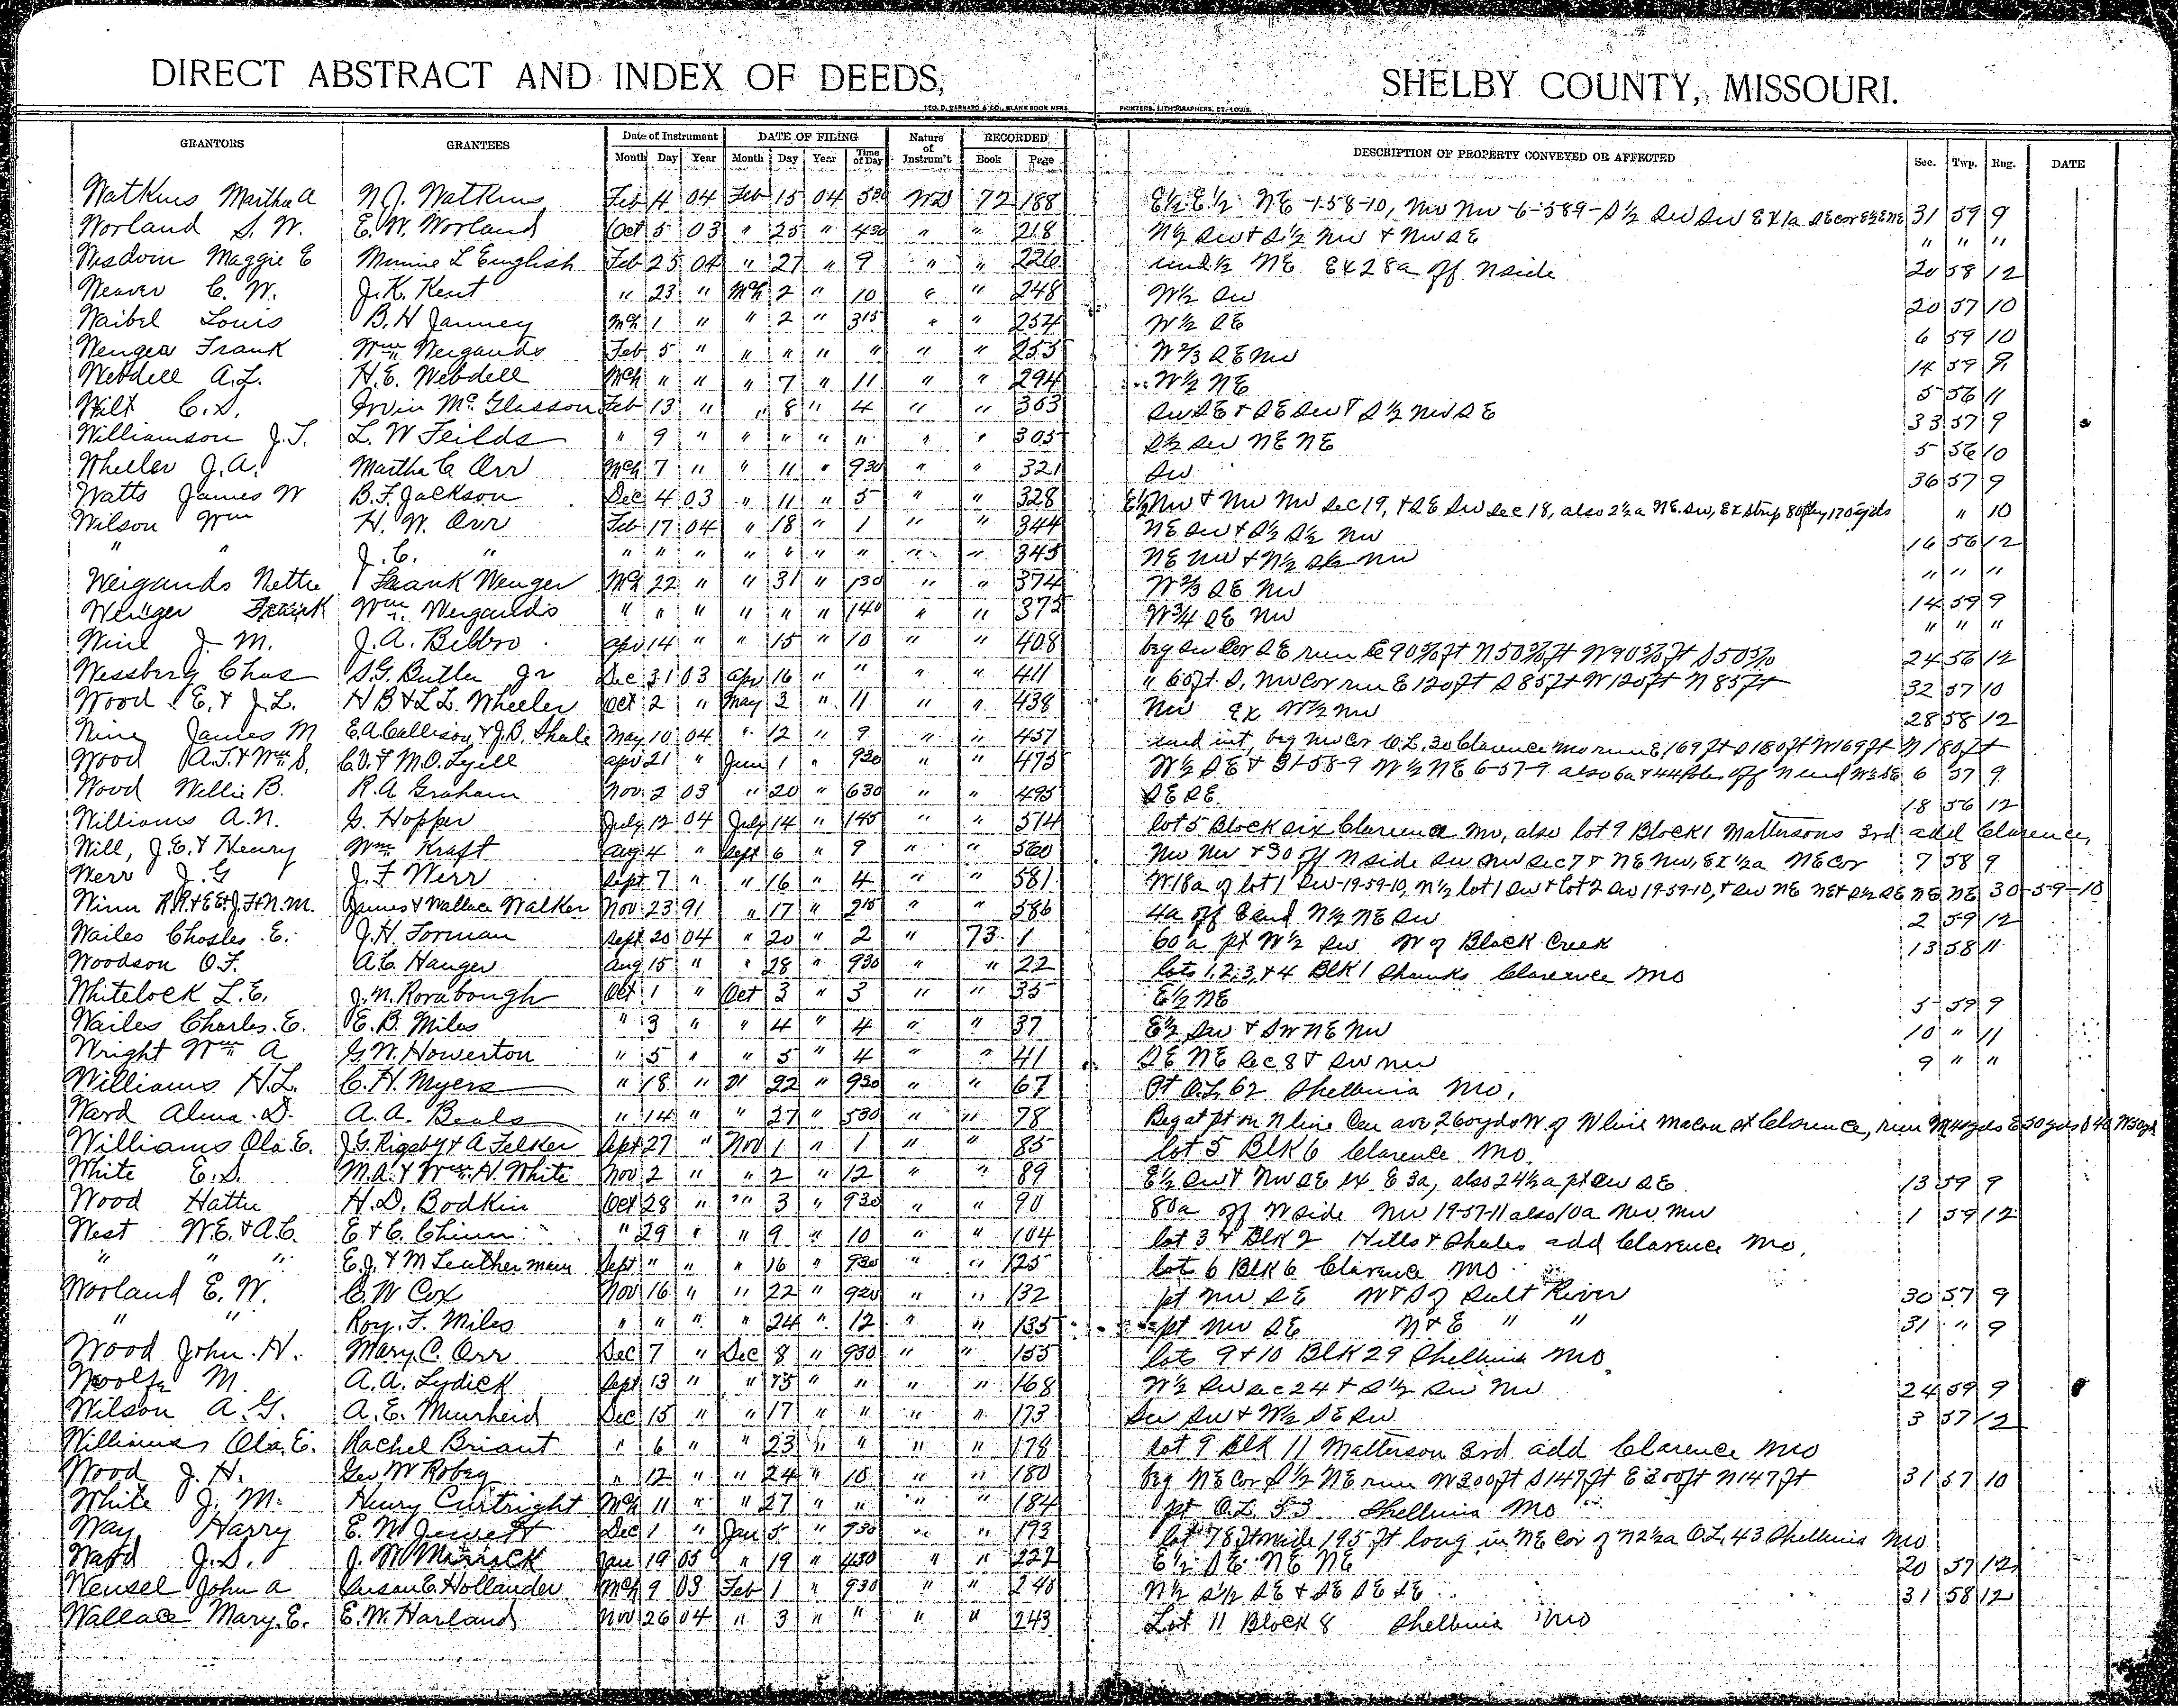 DIRECT ABSTRACT AND INDEX OF DEEDS, SHELBY COUNTY, MISSOURI.
GEO. D. BARNARD & CO., BLANK BOOK MFRS. PRINTERS, LITHOGRAPHERS, ST. LOUIS.
GRANTORS GRANTEES Date of Instrument DATE OF FILING Nature of Instrum't RECORDED DESCRIPTION OF PROPERTY CONVEYED OR AFFECTED Sec. Twp. Rng. DATE
Month Day Year Month Day Year Time of Day Book Page
Watkins Martha A N.J. Watkins Feb 4 04 Feb 15 04 530 WD 72 188 E½ E½ NE -1-58-10, NW NW -6-58-9- S½ SW SW EX 1a SE cor E½ E NE 31 59 9
Worland S. W. E. W. Worland Oct 5 03 " 25 " 430 " " 218 N½ SW & S½ NW & NW SE " " "
Wisdom Maggie E Minnie L English Feb 25 04 " 27 " 9 " " 226 und ½ NE EX 28a off N side 20 58 12
Weaver C. W. J. K. Kent " 23 " Mch 2 " 10 " " 248 W½ SW 20 57 10
Waibel Louis B. H Janney Mch 1 " " 2 " 315 " " 254 W½ SE 6 59 10
Wenger Frank Wm Weigands Feb 5 " " " " " " " 255 W⅔ SE NW 14 59 9
Webdell A. L. H. E. Webdell Mch " " " 7 " 11 " " 294 W½ NE 5 56 11
Wilt C. S. Irvin McGlasson Feb 13 " " 8 " 4 " " 303 SW SE & SE SW & S½ NW SE 33 57 9
Williamson J. T. L. W Feilds " 9 " " " " " " " 305 S½ SW NE NE 5 56 10
Wheeler J. A. Martha C Orr Mch 7 " " 11 " 930 " " 321 SW 36 57 9
Watts James W B. F. Jackson Dec 4 03 " 11 " 5 " " 328 E½ NW & NW NW Sec 19, & SE SW Sec 18, also 2½a NE SW, EX strip 80ft by 120 yds " 10
Wilson Wm H. W. Orr Feb 17 04 " 18 " 1 " " 344 NE SW & S½ S½ NW 16 56 12
" " J. C. " " " " " " " " " " 345 NE NW & N½ SE NW " " "
Weigands Nettie Frank Wenger Mch 22 " " 31 " 130 " " 374 W⅔ SE NW 14 59 9
Wenger Frank Wm Weigands " " " " " " 140 " " 375 W¾ SE NW " " "
Wine J. M. J. A. Bibbro apr 14 " " 15 " 10 " " 408 beg SW Cor SE run E 90 ft N 50 ft W 90 ft S 50 24 56 12
Wessberg Chas S. G. Butler Jr Dec 31 03 apr 16 " " " " 411 " 60ft S. NW Cor run E 120ft S 85ft W 120ft N 85ft 32 57 10
Wood E. & J. L. H B & L L. Wheeler Oct 2 " May 3 " 11 " " 438 NW EX W½ NW 28 58 12
Wine James M E. A. Collison & J. B. Shale May 10 04 " 12 " 9 " " 457 und int, beg NW Cor O. L. 30 Clarence Mo run E 169 ft S 180 ft W 169 ft N 180 ft
Wood A. T. & Wm S. C. V. & M. O. Lyell apr 21 " June 1 " 930 " " 475 W½ SE & 31-58-9 W½ NE 6-57-9 also 6a & 44 Poles off N end W½ SE 6 57 9
Wood Willie B. R. A Graham Nov 2 03 " 20 " 630 " " 495 SE SE 18 56 12
Williams A. N. G. Hopper July 12 04 July 14 " 145 " " 514 lot 5 Block six Clarence Mo, also lot 9 Block 1 Mattersons 3rd add Clarence,
Will, J. E. & Henry Wm Kraft aug 4 " Sept 6 " 9 " " 560 NW NW & 30 off N side SW NW Sec 7 & NE NW, EX ½a NE Cor 7 58 9
Werr J. G J. F Werr Sept 7 " " 16 " 4 " " 581 W 18a of lot 1 SW-19-59-10, N½ lot 1 SW & lot 2 SW 19-59-10, & SW NE NE & S½ SE NE NE 30-59-10
Winn R. R. & E E & J. F. & N. M. James & Wallace Walker Nov 23 91 " 17 " 215 " " 586 4a off E end N½ NE SW 2 59 12
Wailes Charles E. J. H. Forman Sept 20 04 " 20 " 2 " 73 1 60 a pt W½ SW W of Black Creek 13 58 11
Woodson O. F. A. C. Hanger aug 15 " " 28 " 930 " " 22 lots 1, 2, 3, & 4 Blk 1 Shanks Clarence Mo
Whitelock L. E. J. N. Rorabough Oct 1 " Oct 3 " 3 " " 35 E½ NE 5 59 9
Wailes Charles. E. E. B. Miles " 3 " " 4 " 4 " " 37 E½ SW & SW NE NW 10 " 11
Wright Wm A G. W. Howerton " 5 " " 5 " 4 " " 41 SE NE Sec 8 & SW NW 9 " "
Williams H. L. C. H. Myers " 18 " " 22 " 930 " " 67 Pt O. L. 62 Shelbina Mo,
Ward Alma. D. A. A. Beals " 14 " " 27 " 530 " " 78 Beg at pt on N line Cen ave, 260 yds W of W line Macon st Clarence, run N 40 yds E 50 yds S 40 W 50 yd
Williams Ola. E. J. G. Rigsby & A Felker Sept 27 " Nov 1 " 1 " " 85 lot 5 Blk 6 Clarence Mo.
White E. S. M. A. & Wm. H. White Nov 2 " " 2 " 12 " " 89 E½ SW & NW SE EX E 3a, also 24½ a pt SW SE 13 59 9
Wood Hattie H. D. Bodkin Oct 28 " " 3 " 930 " " 90 80a off W side NW 19-57-11 also 10a NW NW 1 59 12
West W. E. & A. C. E & C. Chinn " 29 " " 9 " 10 " " 104 lot 3 & Blk 2 Hills & Shales add Clarence Mo.
" " " E. J. & M Leatherman Sept " " " 16 " 930 " " 125 lot 6 Blk 6 Clarence Mo
Worland E. W. C. W Cox Nov 16 " " 22 " 920 " " 132 pt NW SE W & S of Salt River 30 57 9
" " Roy. F. Miles " " " " 24 " 12 " " 135 pt NW SE N & E " " 31 " 9
Wood John. H. Mary. C. Orr Dec 7 " Dec 8 " 930 " " 155 lots 9 & 10 Blk 29 Shelbina Mo
Woolfe M. A. A. Lydick Sept 13 " " 15 " " " " 168 W½ SW Sec 24 & S½ SW NW 24 59 9
Wilson A. G. A. E. Muirheid Dec 15 " " 17 " " " " 173 SW SW & W½ SE SW 3 57 12
Williams Ola. E. Rachel Briant " 6 " " 23 " " " " 178 lot 9 Blk 11 Matterson 3rd add Clarence Mo
Wood J. H. Geo W Robey " 12 " " 24 " 10 " " 180 beg NE Cor S½ NE run W 300ft S 147ft E 300ft N 147ft 31 57 10
White J. M. Henry Curtright Mch 11 " " 27 " " " " 184 pt O. L. 53 Shelbina Mo
Way Harry E. W. Jewett Dec 1 " Jan 5 " 930 " " 193 lot 78 ft wide 195 ft long in NE Cor of N 2½a O. L. 43 Shelbina Mo
Ward J. S. J. W Mirrick Jan 19 05 " 19 " 430 " " 222 E½ SE NE NE 20 57 12
Wensel John A Susan E. Hollander Mch 9 03 Feb 1 " 930 " " 240 N½ S½ SE & SE SE SE 31 58 12
Wallace Mary. E. E. W. Harland Nov 26 04 " 3 " " " " 243 Lot 11 Block 8 Shelbina Mo